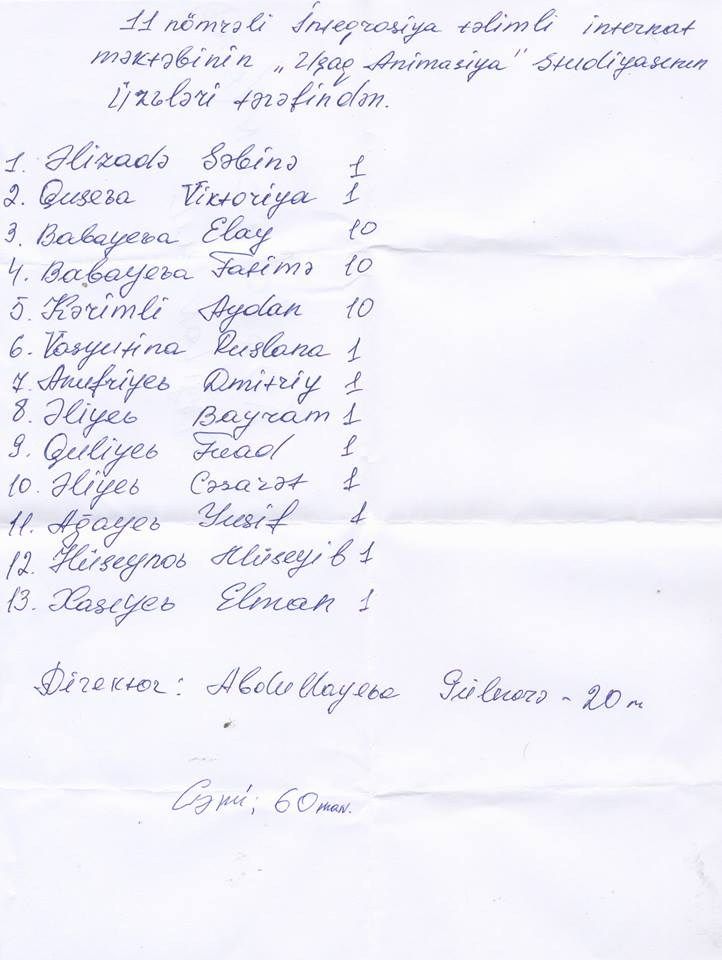 11 nömrəli İnteqrasiya təlimli internat
məktəbinin „Uşaq Animasiya" Studiyasının
Üzvləri tərəfindən.
1. Əlizadə Səbinə 1
2. Quseva Viktoriya 1
3. Babayeva Elay 10
4. Babayeva Fatimə 10
5. Kərimli Aydan 10
6. Vasyutina Ruslana 1
7. Anufriyev Dmitriy 1
8. Əliyev Bayram 1
9. Quliyev Fuad 1
10. Əliyev Cəsarət 1
11. Ağayev Yusif 1
12. Hüseynov Hüseyib 1
13. Xasıyev Elman 1
Direktor: Abdullayeva Gülnarə - 20 m
Cəmi: 60 man.